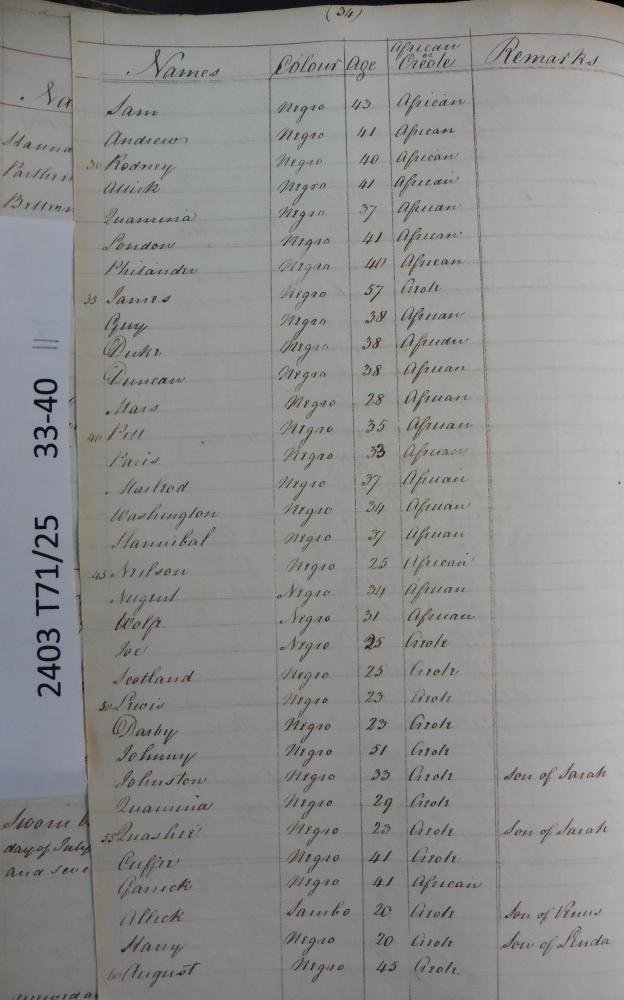 (34)
Names Colour Age African or Creole Remarks
Sam Negro 43 African
Andrew Negro 41 African
30 Rodney Negro 40 African
Attick Negro 41 African
Quamina Negro 37 African
London Negro 41 African
Philander Negro 40 African
35 James Negro 57 Creole
Guy Negro 38 African
Duke Negro 38 African
Duncan Negro 38 African
Mars Negro 28 African
40 Pitt Negro 35 African
Paris Negro 33 African
Macleod Negro 37 African
Washington Negro 34 African
Hannibal Negro 37 African
45 Neilson Negro 25 African
Nugent Negro 34 African
Wolfe Negro 31 African
Joe Negro 25 Creole
Scotland Negro 25 Creole
50 Lewis Negro 23 Creole
Darby Negro 23 Creole
Johnny Negro 51 Creole
Johnston Negro 33 Creole Son of Sarah
Quamina Negro 29 Creole
55 Quashie Negro 23 Creole Son of Sarah
Cuffie Negro 41 Creole
Garrick Negro 41 African
Allick Sambo 20 Creole Son of Venus
Harry Negro 20 Creole Son of Linda
60 August Negro 45 Creole
2403 T71/25 33-40
Na
Hanna
Parthen
Sworn
day of July
and seve